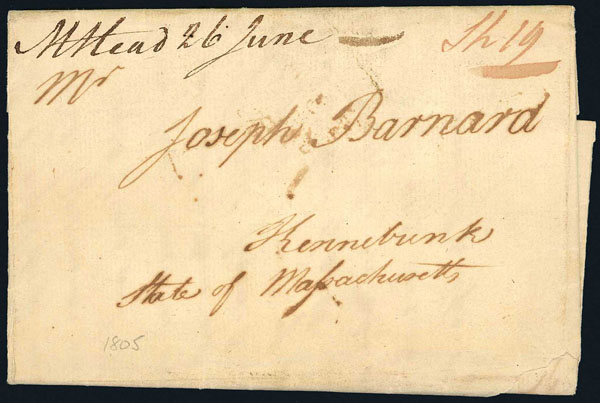 M Head 26 June
Sh 19
Mr
Joseph Barnard
Kennebunk
State of Massachusetts
1805